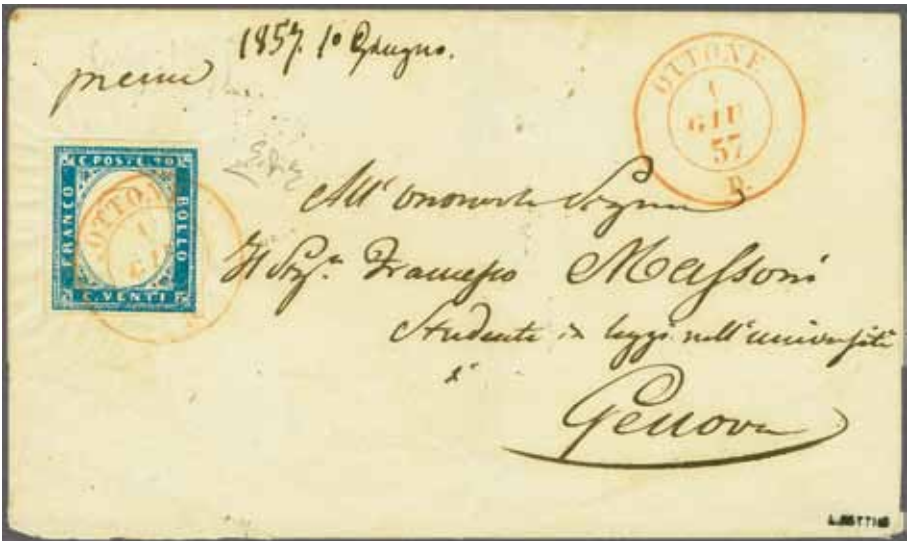 1857. 1º Giugno.
preme
OTTONE
1
GIU
57
D.
C. POSTE. 40
FRANCO
BOLLO
C. VENTI
OTTONE
1
GI
All' onorevole Signore
Il Sigr. Francesco Massoni
Studente in leggi nell'università
di
Genova